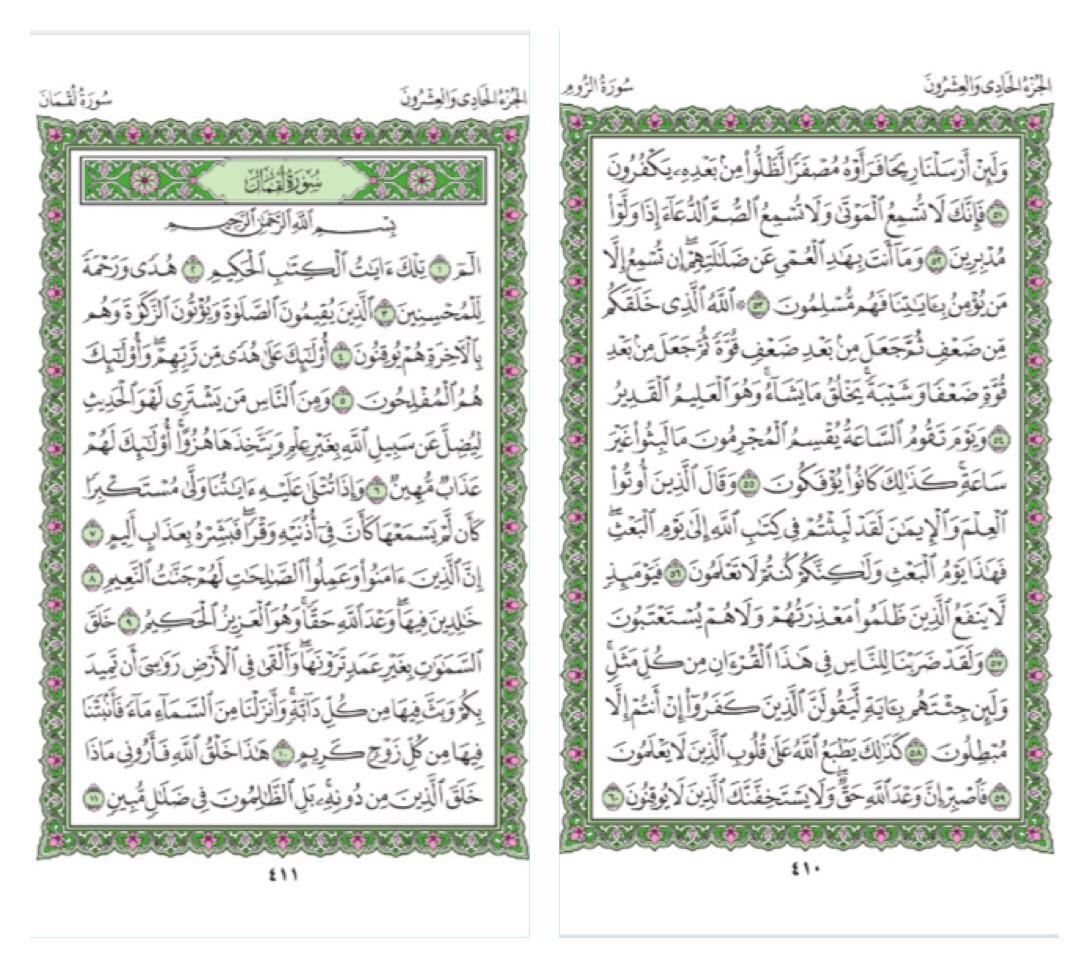 الجُزْءُ الحَادِى وَالعِشْرُونَ
سُورَةُ الرُّومِ
وَلَئِنْ أَرْسَلْنَا رِيحًا فَرَأَوْهُ مُصْفَرًّا لَّظَلُّوا۟ مِنۢ بَعْدِهِۦ يَكْفُرُونَ
٥١ فَإِنَّكَ لَا تُسْمِعُ الْمَوْتَىٰ وَلَا تُسْمِعُ الصُّمَّ الدُّعَآءَ إِذَا وَلَّوْا۟
مُدْبِرِينَ ٥٢ وَمَآ أَنتَ بِهَٰدِ الْعُمْىِ عَن ضَلَٰلَتِهِمْ ۖ إِن تُسْمِعُ إِلَّا
مَن يُؤْمِنُ بِـَٔايَٰتِنَا فَهُم مُّسْلِمُونَ ٥٣ ۞ اللَّهُ الَّذِى خَلَقَكُم
مِّن ضَعْفٍ ثُمَّ جَعَلَ مِنۢ بَعْدِ ضَعْفٍ قُوَّةً ثُمَّ جَعَلَ مِنۢ بَعْدِ
قُوَّةٍ ضَعْفًا وَشَيْبَةً ۚ يَخْلُقُ مَا يَشَآءُ ۖ وَهُوَ الْعَلِيمُ الْقَدِيرُ
٥٤ وَيَوْمَ تَقُومُ السَّاعَةُ يُقْسِمُ الْمُجْرِمُونَ مَا لَبِثُوا۟ غَيْرَ
سَاعَةٍ ۚ كَذَٰلِكَ كَانُوا۟ يُؤْفَكُونَ ٥٥ وَقَالَ الَّذِينَ أُوتُوا۟
الْعِلْمَ وَالْإِيمَٰنَ لَقَدْ لَبِثْتُمْ فِى كِتَٰبِ اللَّهِ إِلَىٰ يَوْمِ الْبَعْثِ ۖ
فَهَٰذَا يَوْمُ الْبَعْثِ وَلَٰكِنَّكُمْ كُنتُمْ لَا تَعْلَمُونَ ٥٦ فَيَوْمَئِذٍ
لَّا يَنفَعُ الَّذِينَ ظَلَمُوا۟ مَعْذِرَتُهُمْ وَلَا هُمْ يُسْتَعْتَبُونَ
٥٧ وَلَقَدْ ضَرَبْنَا لِلنَّاسِ فِى هَٰذَا الْقُرْءَانِ مِن كُلِّ مَثَلٍ ۚ
وَلَئِن جِئْتَهُم بِـَٔايَةٍ لَّيَقُولَنَّ الَّذِينَ كَفَرُوٓا۟ إِنْ أَنتُمْ إِلَّا
مُبْطِلُونَ ٥٨ كَذَٰلِكَ يَطْبَعُ اللَّهُ عَلَىٰ قُلُوبِ الَّذِينَ لَا يَعْلَمُونَ
٥٩ فَاصْبِرْ إِنَّ وَعْدَ اللَّهِ حَقٌّ ۖ وَلَا يَسْتَخِفَّنَّكَ الَّذِينَ لَا يُوقِنُونَ ٦٠
٤١٠
الجُزْءُ الحَادِى وَالعِشْرُونَ
سُورَةُ لُقْمَانَ
سُورَةُ لُقْمَانَ
بِسْمِ اللَّهِ الرَّحْمَٰنِ الرَّحِيمِ
الٓمٓ ١ تِلْكَ ءَايَٰتُ الْكِتَٰبِ الْحَكِيمِ ٢ هُدًى وَرَحْمَةً
لِّلْمُحْسِنِينَ ٣ الَّذِينَ يُقِيمُونَ الصَّلَوٰةَ وَيُؤْتُونَ الزَّكَوٰةَ وَهُم
بِالْءَاخِرَةِ هُمْ يُوقِنُونَ ٤ أُو۟لَٰٓئِكَ عَلَىٰ هُدًى مِّن رَّبِّهِمْ ۖ وَأُو۟لَٰٓئِكَ
هُمُ الْمُفْلِحُونَ ٥ وَمِنَ النَّاسِ مَن يَشْتَرِى لَهْوَ الْحَدِيثِ
لِيُضِلَّ عَن سَبِيلِ اللَّهِ بِغَيْرِ عِلْمٍ وَيَتَّخِذَهَا هُزُوًا ۚ أُو۟لَٰٓئِكَ لَهُمْ
عَذَابٌ مُّهِينٌ ٦ وَإِذَا تُتْلَىٰ عَلَيْهِ ءَايَٰتُنَا وَلَّىٰ مُسْتَكْبِرًا
كَأَن لَّمْ يَسْمَعْهَا كَأَنَّ فِىٓ أُذُنَيْهِ وَقْرًا ۖ فَبَشِّرْهُ بِعَذَابٍ أَلِيمٍ ٧
إِنَّ الَّذِينَ ءَامَنُوا۟ وَعَمِلُوا۟ الصَّٰلِحَٰتِ لَهُمْ جَنَّٰتُ النَّعِيمِ ٨
خَٰلِدِينَ فِيهَا ۖ وَعْدَ اللَّهِ حَقًّا ۚ وَهُوَ الْعَزِيزُ الْحَكِيمُ ٩ خَلَقَ
السَّمَٰوَٰتِ بِغَيْرِ عَمَدٍ تَرَوْنَهَا ۖ وَأَلْقَىٰ فِى الْأَرْضِ رَوَٰسِىَ أَن تَمِيدَ
بِكُمْ وَبَثَّ فِيهَا مِن كُلِّ دَآبَّةٍ ۚ وَأَنزَلْنَا مِنَ السَّمَآءِ مَآءً فَأَنۢبَتْنَا
فِيهَا مِن كُلِّ زَوْجٍ كَرِيمٍ ١٠ هَٰذَا خَلْقُ اللَّهِ فَأَرُونِى مَاذَا
خَلَقَ الَّذِينَ مِن دُونِهِۦ ۚ بَلِ الظَّٰلِمُونَ فِى ضَلَٰلٍ مُّبِينٍ ١١
٤١١